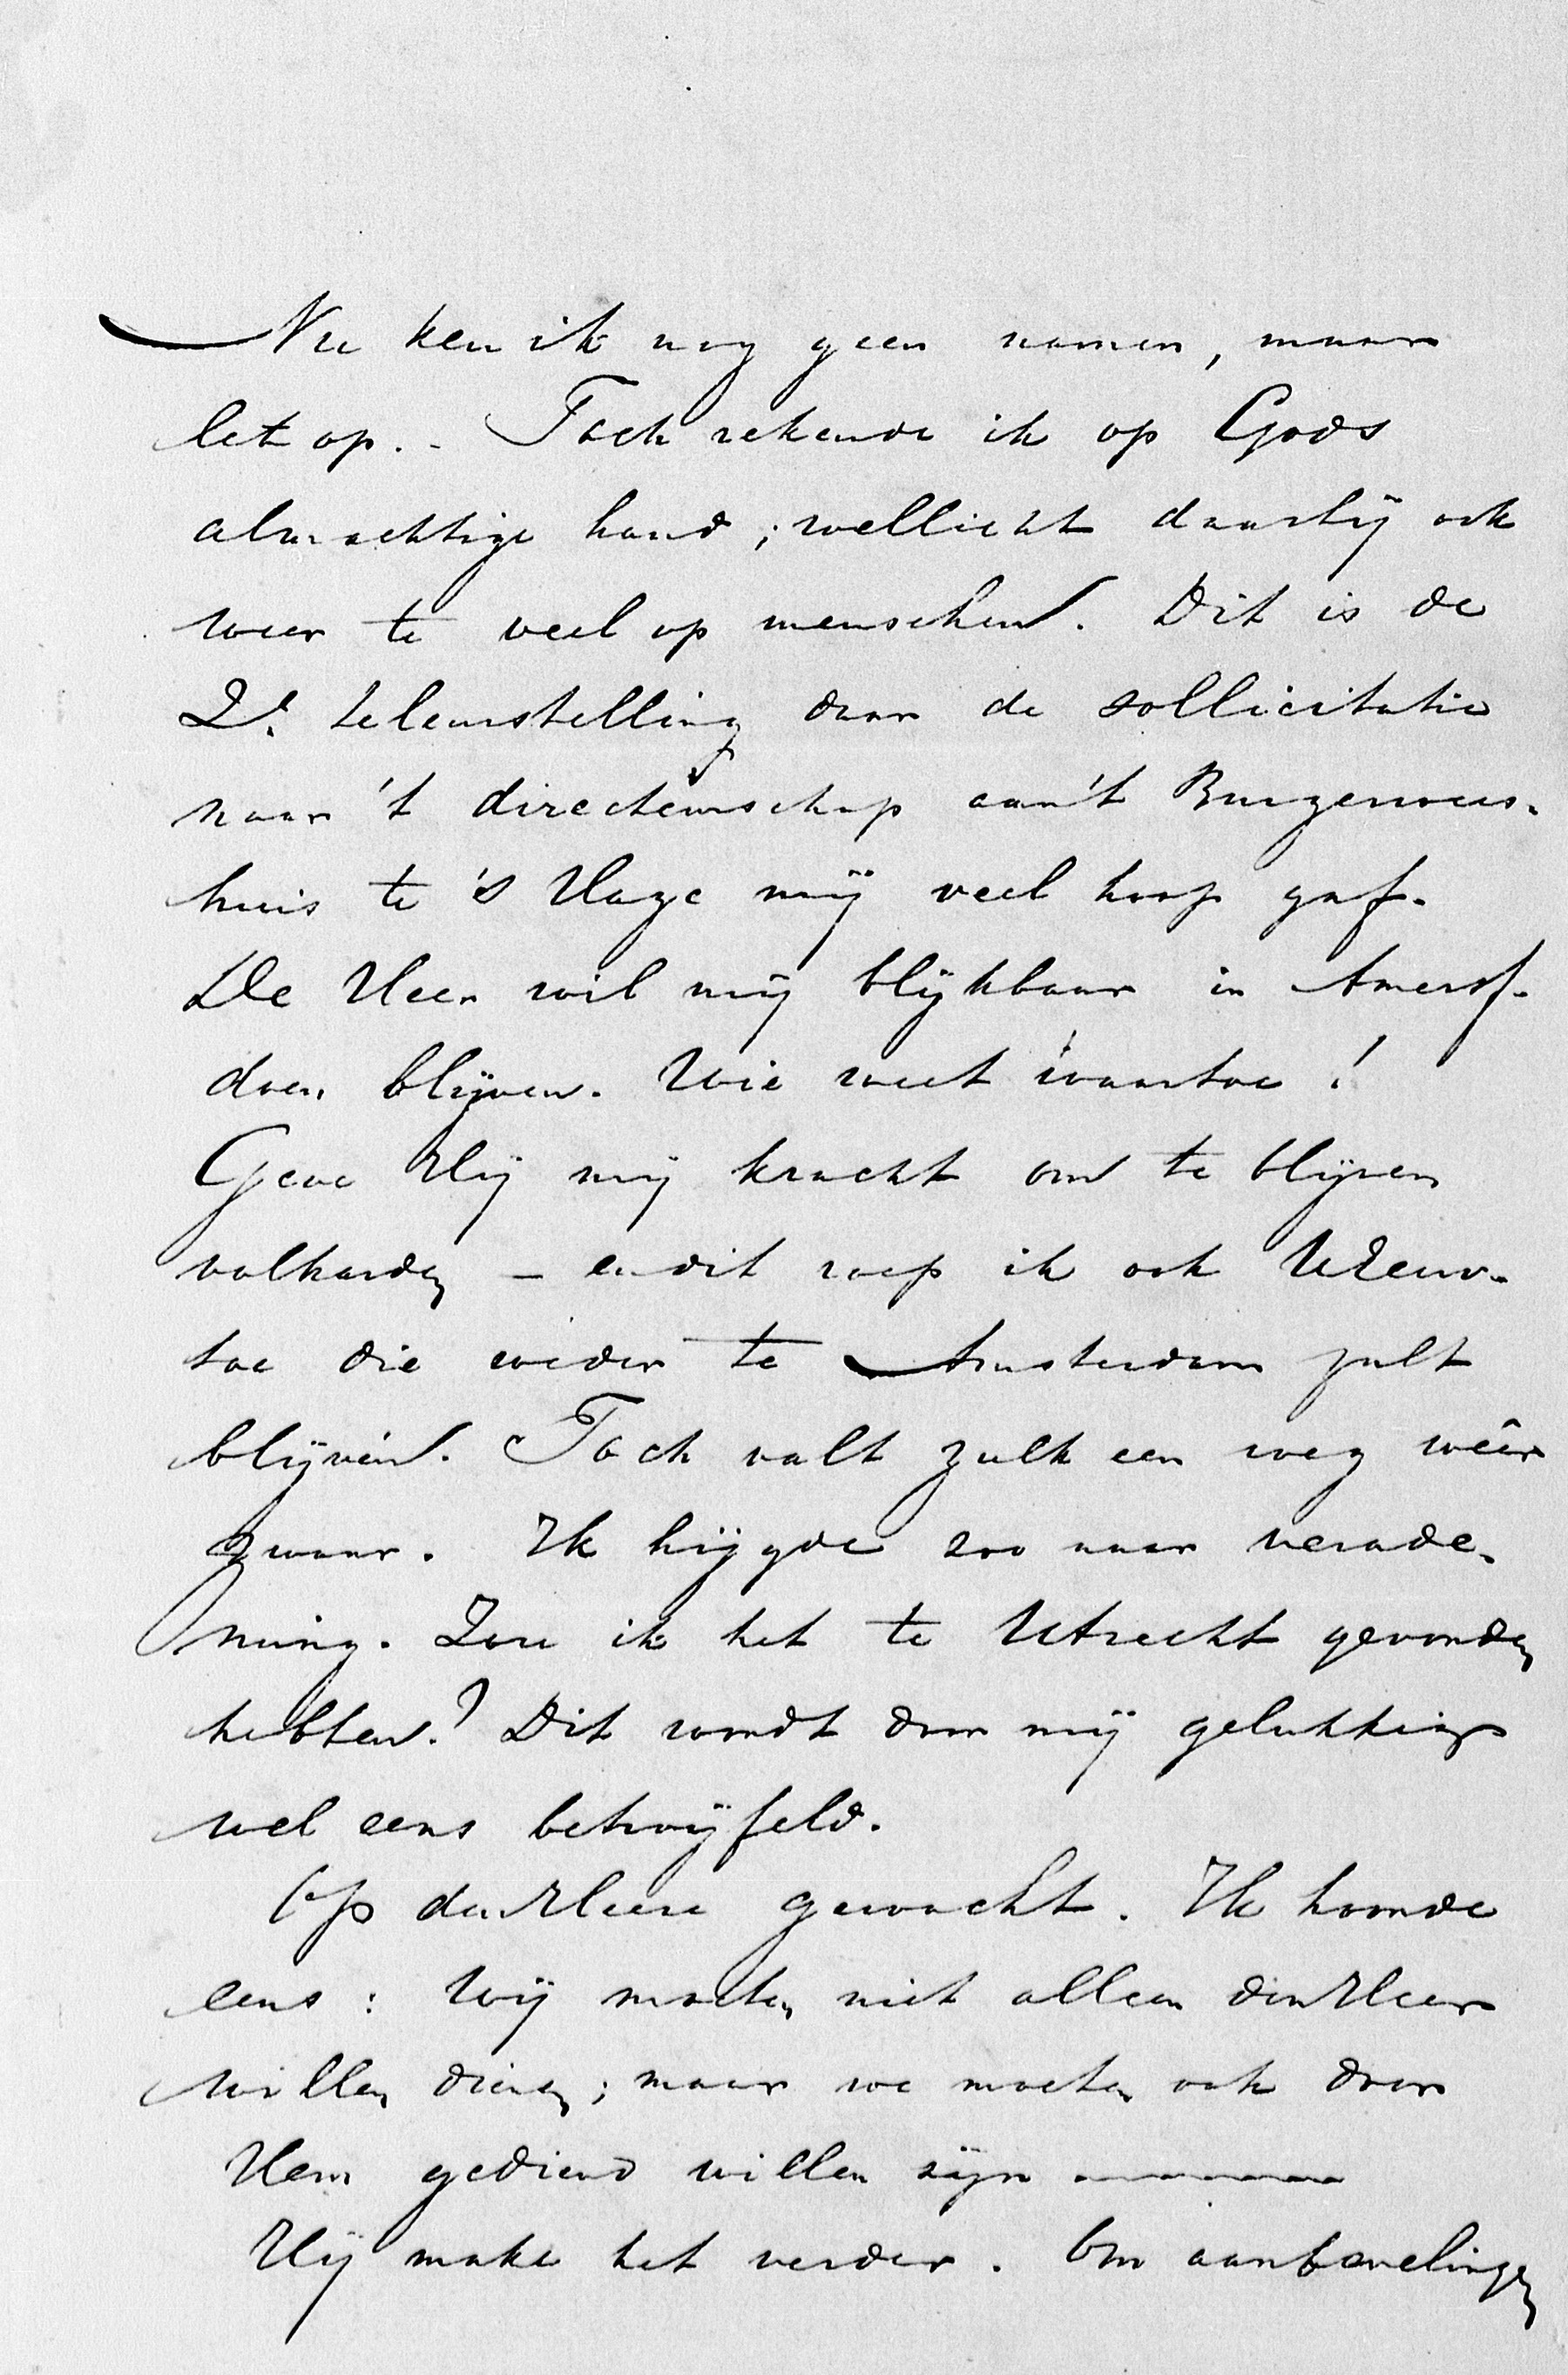 Nu ken ik nog geen namen, maar
let op. - Toch rekende ik op Gods
almachtige hand; wellicht daarbij ook
weer te veel op menschen. Dit is de
2e teleurstelling daar de sollicitatie
naar 't directeurschap aan 't Burgerwees-
huis te 's Hage mij veel hoop gaf.
De Heer wil mij blijkbaar in Amersf.
doen blijven. Wie weet waartoe!
Geve Hij mij kracht om te blijven
volharden — en dit roep ik ook UEerw.
toe die weder te Amsterdam zult
blijven. Toch valt zulk een weg wêer
zwaar. Ik hijgde zoo naar verade-
ming. Zou ik het te Utrecht gevonden
hebben? Dit wordt door mij gelukkig
wel eens betwijfeld.
Op den Heere gewacht. Ik hoorde
eens: Wij moeten niet alleen den Heer
willen dienen; maar we moeten ook door
Hem gediend willen zijn
Hij make het verder. Om aanbevelingen